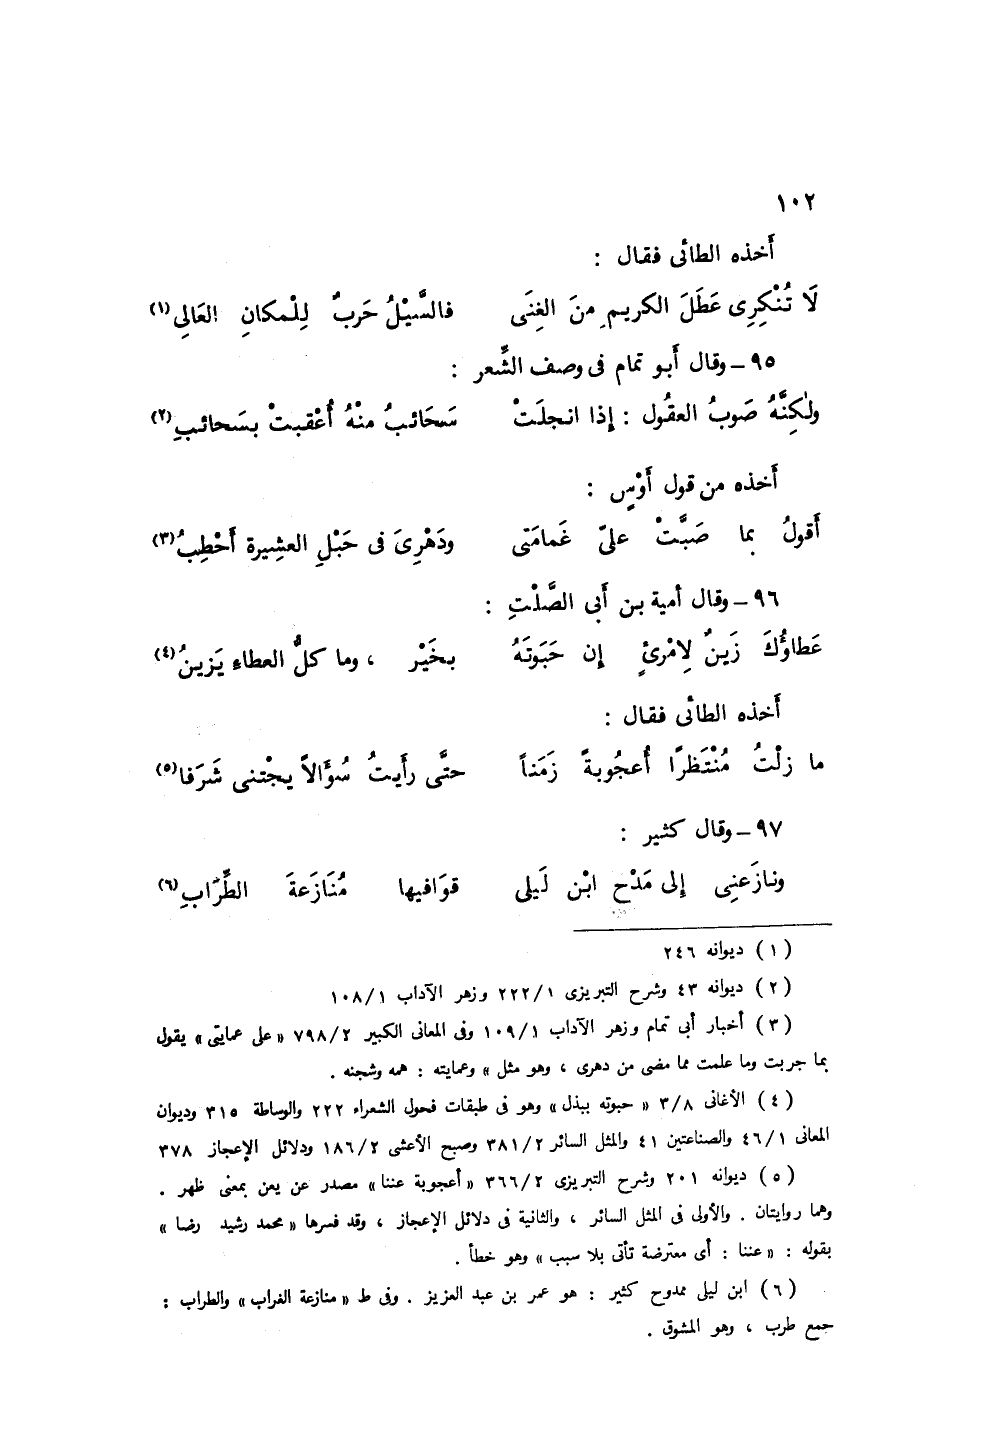 ١٠٢
أَخذه الطائى فقال :
لَا تُنْكِرِى عَطَلَ الكريمِ منَ الغِنَى فالسَّيْلُ حَربٌ لِلْمكانِ العَالِى(١)
٩٥ – وقال أَبو تمام فى وصف الشِّعر :
ولٰكِنَّهُ صَوبُ العقُول : إذا انجلَتْ سَحَائبُ منْهُ أُعْقبتْ بسَحائبِ(٢)
أَخذه من قول أَوْسٍ :
أَقولُ بما صَبَّتْ علىّ غَمامَتى ودَهْرِىَ فى حَبْلِ العشِيرة أَحْطِبُ(٣)
٩٦ – وقال أمية بن أَبى الصَّلْتِ :
عَطاؤُكَ زَينٌ لِامْرئٍ إن حَبَوتَهُ بخَيْر ، وما كلُّ العطاءِ يَزينُ(٤)
أَخذه الطائى فقال :
ما زلْتُ مُنْتَظرًا أُعجُوبةً زَمَناً حتَّى رأَيتُ سُؤَالاً يجْتنى شَرَفا(٥)
٩٧ – وقال كثير :
ونازَعنِى إلى مَدْحِ ابْن لَيلى قوَافيها مُنَازَعةَ الطِّرَابِ(٦)
(١) ديوانه ٢٤٦
(٢) ديوانه ٤٣ وشرح التبريزى ٢٢٢/١ وزهر الآداب ١٠٨/١
(٣) أخبار أبى تمام وزهر الآداب ١٠٩/١ وفى المعانى الكبير ٧٩٨/٢ « على عمايتى » يقول
بما جربت وما علمت مما مضى من دهرى ، وهو مثل » وعمايته : همه وشجنه .
(٤) الأغانى ٣/٨ « حبوته ببذل » وهو فى طبقات فحول الشعراء ٢٢٢ والوساطة ٣١٥ وديوان
المعانى ٤٦/١ والصناعتين ٤١ والمثل السائر ٣٨١/٢ وصبح الأعشى ١٨٦/٢ ودلائل الإعجاز ٣٧٨
(٥) ديوانه ٢٠١ وشرح التبريزى ٣٦٦/٢ « أعجوبة عننا » مصدر عن يعن بمعنى ظهر .
وهما روايتان . والأولى فى المثل السائر ، والثانية فى دلائل الإعجاز ، وقد فسرها « محمد رشيد رضا »
بقوله : « عننا : أى معترضة تأتى بلا سبب » وهو خطأ .
(٦) ابن ليلى ممدوح كثير : هو عمر بن عبد العزيز . وفى ط « منازعة الغراب » والطراب :
جمع طرب ، وهو المشوق .